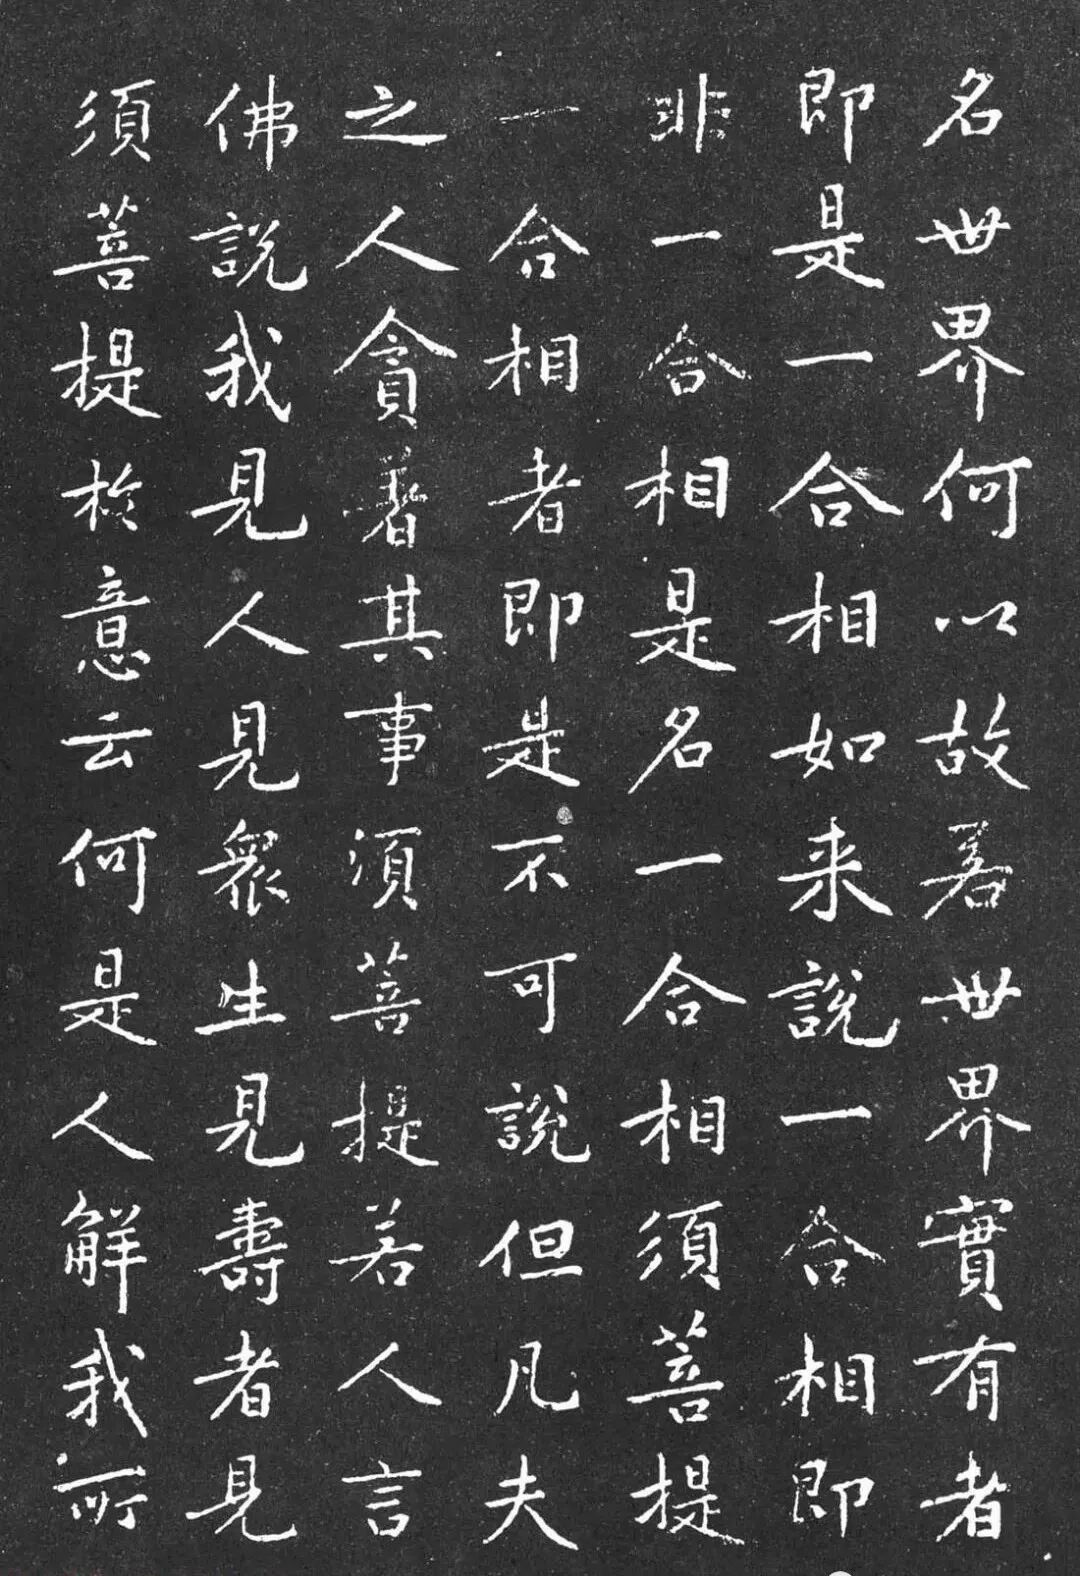 名世界何以故若世界實有者
即是一合相如来說一合相即
非一合相是名一合相須菩提
一合相者即是不可說但凡夫
之人貪著其事須菩提若人言
佛說我見人見眾生見壽者見
須菩提於意云何是人解我所